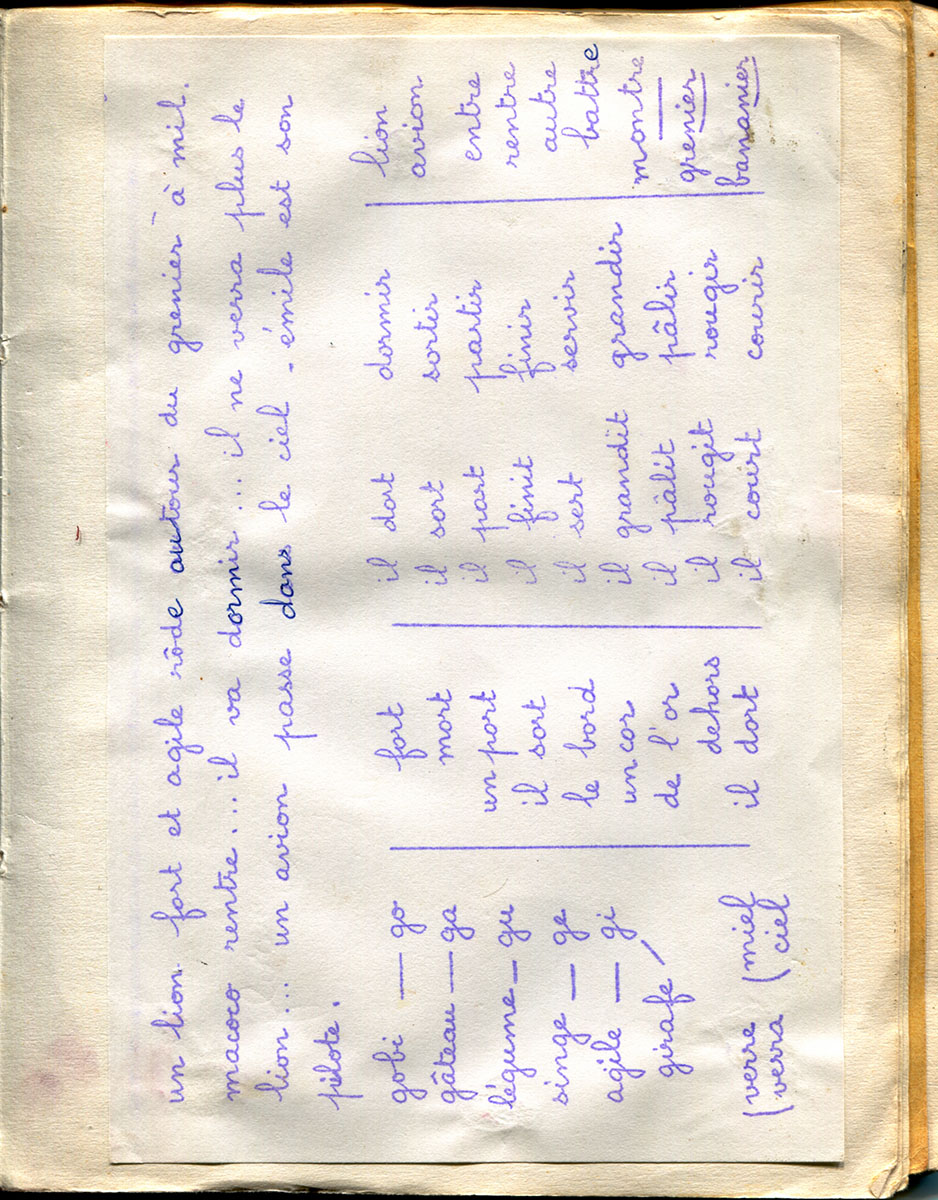 un lion fort et agile rôde autour du grenier à mil.
macoco rentre... il va dormir... il ne verra plus le
lion... un avion passe dans le ciel - émile est son
pilote.
gobi — go
gâteau — ga
légume — gu
singe — ge
agile — gi
girafe /
(verre
(verra
(mief
(ciel
fort
mort
un port
il sort
le bord
un cor
de l'or
dehors
il dort
il dort
il sort
il part
il finit
il sert
il grandit
il pâlit
il rougit
il court
dormir
sortir
partir
finir
servir
grandir
pâlir
rougir
courir
lion
avion
entre
rentre
autre
battre
montre
grenier
bananier